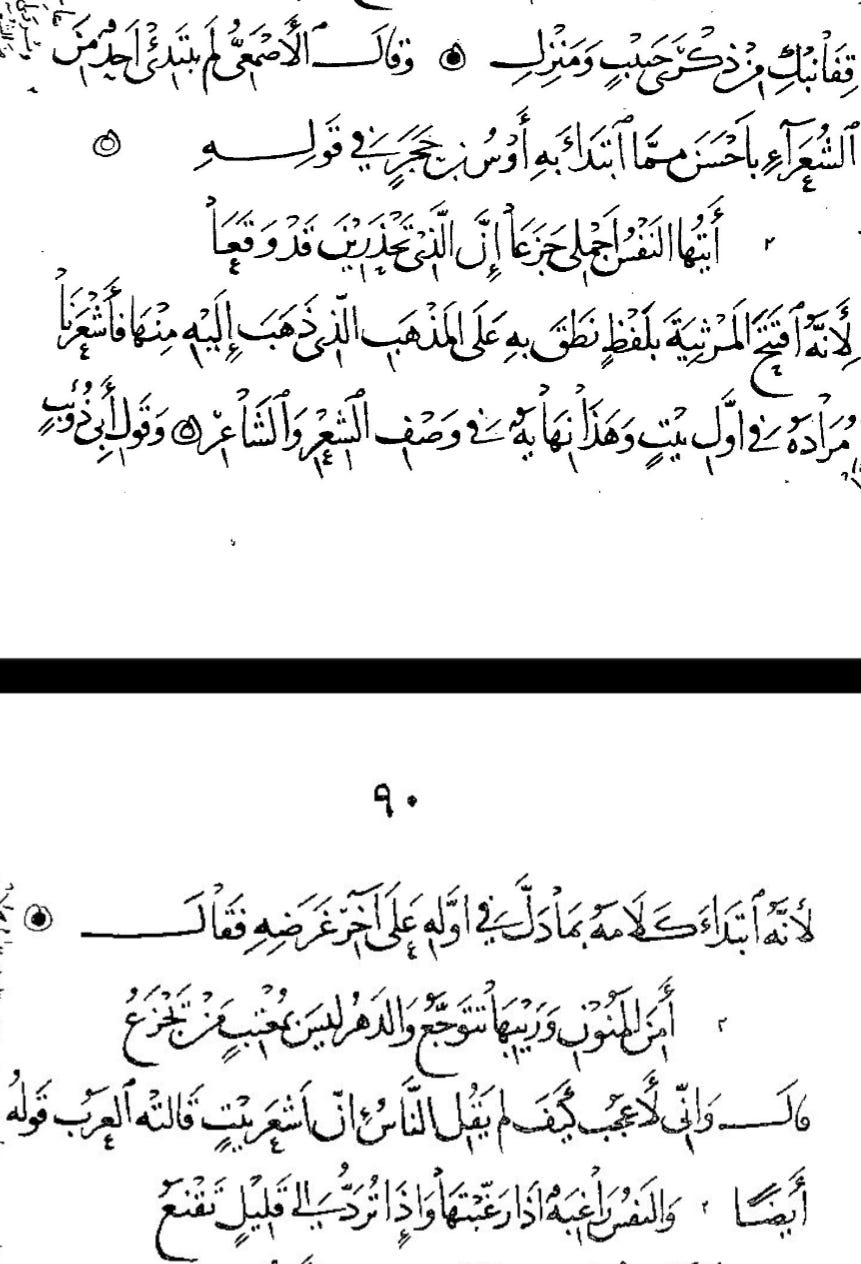 قِفَا نَبْكِ مِنْ ذِكْرَى حَبِيبٍ وَمَنْزِلِ ۞ وَقَالَ الْأَصْمَعِيُّ لَمْ يَبْتَدِئْ أَحَدٌ مِنَ
الشُّعَرَآءِ بِأَحْسَنَ مِمَّا ابْتَدَاءَ بِهِ أَوْسُ بْنُ حَجَرٍ فِي قَوْلِهِ
أَيَّتُهَا النَّفْسُ اجْمِلِي جَزَعَاً إِنَّ الَّذِي تَحْذَرِينَ قَدْ وَقَعَاً
لِأَنَّهُ افْتَتَحَ الْمَرْثِيَةَ بِلَفْظٍ نَطَقَ بِهِ عَلَى الْمَذْهَبِ الَّذِي ذَهَبَ إِلَيْهِ مِنْهَا فَأَشْعَرَنَا
مُرَادَهُ فِي أَوَّلِ بَيْتٍ وَهَذَا نِهَايَةٌ فِي وَصْفِ الشِّعْرِ وَالشَّاعِرِ ۞ وَقَوْلُ أَبِي ذُؤَيْبٍ
٩٠
لِأَنَّهُ ابْتَدَاءَ كَلَامَهُ بِمَا دَلَّ فِي أَوَّلِهِ عَلَى آخِرِ غَرَضِهِ فَقَالَ
أَمِنَ الْمَنُونِ وَرَيْبِهَا تَتَوَجَّعُ وَالدَّهْرُ لَيْسَ بِمُعْتِبٍ مَنْ يَجْزَعُ
قَالَ وَإِنِّي لَأَعْجَبُ كَيْفَ لَمْ يَقُلِ النَّاسُ إِنَّ أَشْعَرَ بَيْتٍ قَالَتْهُ الْعَرَبُ قَوْلُهُ
أَيْضًا وَالنَّفْسُ رَاغِبَةٌ إِذَا رَغَّبْتَهَا وَإِذَا تُرَدُّ إِلَى قَلِيلٍ تَقْنَعُ